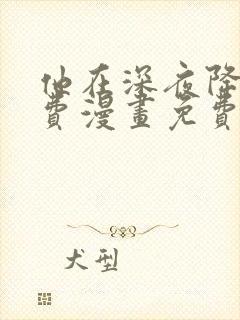 他在深夜降
费漫画免费
犬型